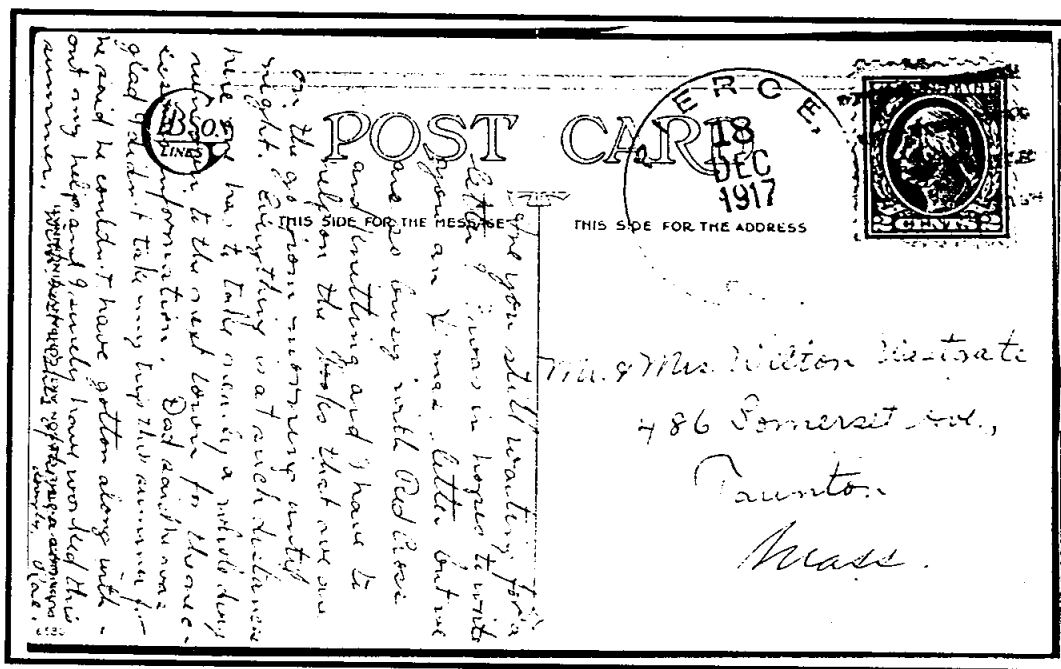 POST CARD
B.S.O.
LINES
THIS SIDE FOR THE MESSAGE
THIS SIDE FOR THE ADDRESS
PIERCE,
18
DEC
1917
2 CENTS 2
Mr. & Mrs. Wilton Westgate
486 Somerset Ave.,
Taunton
Mass.
Are you still waiting for a
letter? I was in hopes to write
you an Xmas letter but we
are so busy with Red Cross
and knitting and I have to
help on the books that we are
on the go from morning until
night. Everything is at such distance
here it has to take nearly a whole day
to the next town for the
information. Dad said he was
glad I didn't take my trip this summer for
he said he couldn't have gotton along with-
out my help and I surely have worked this
summer.